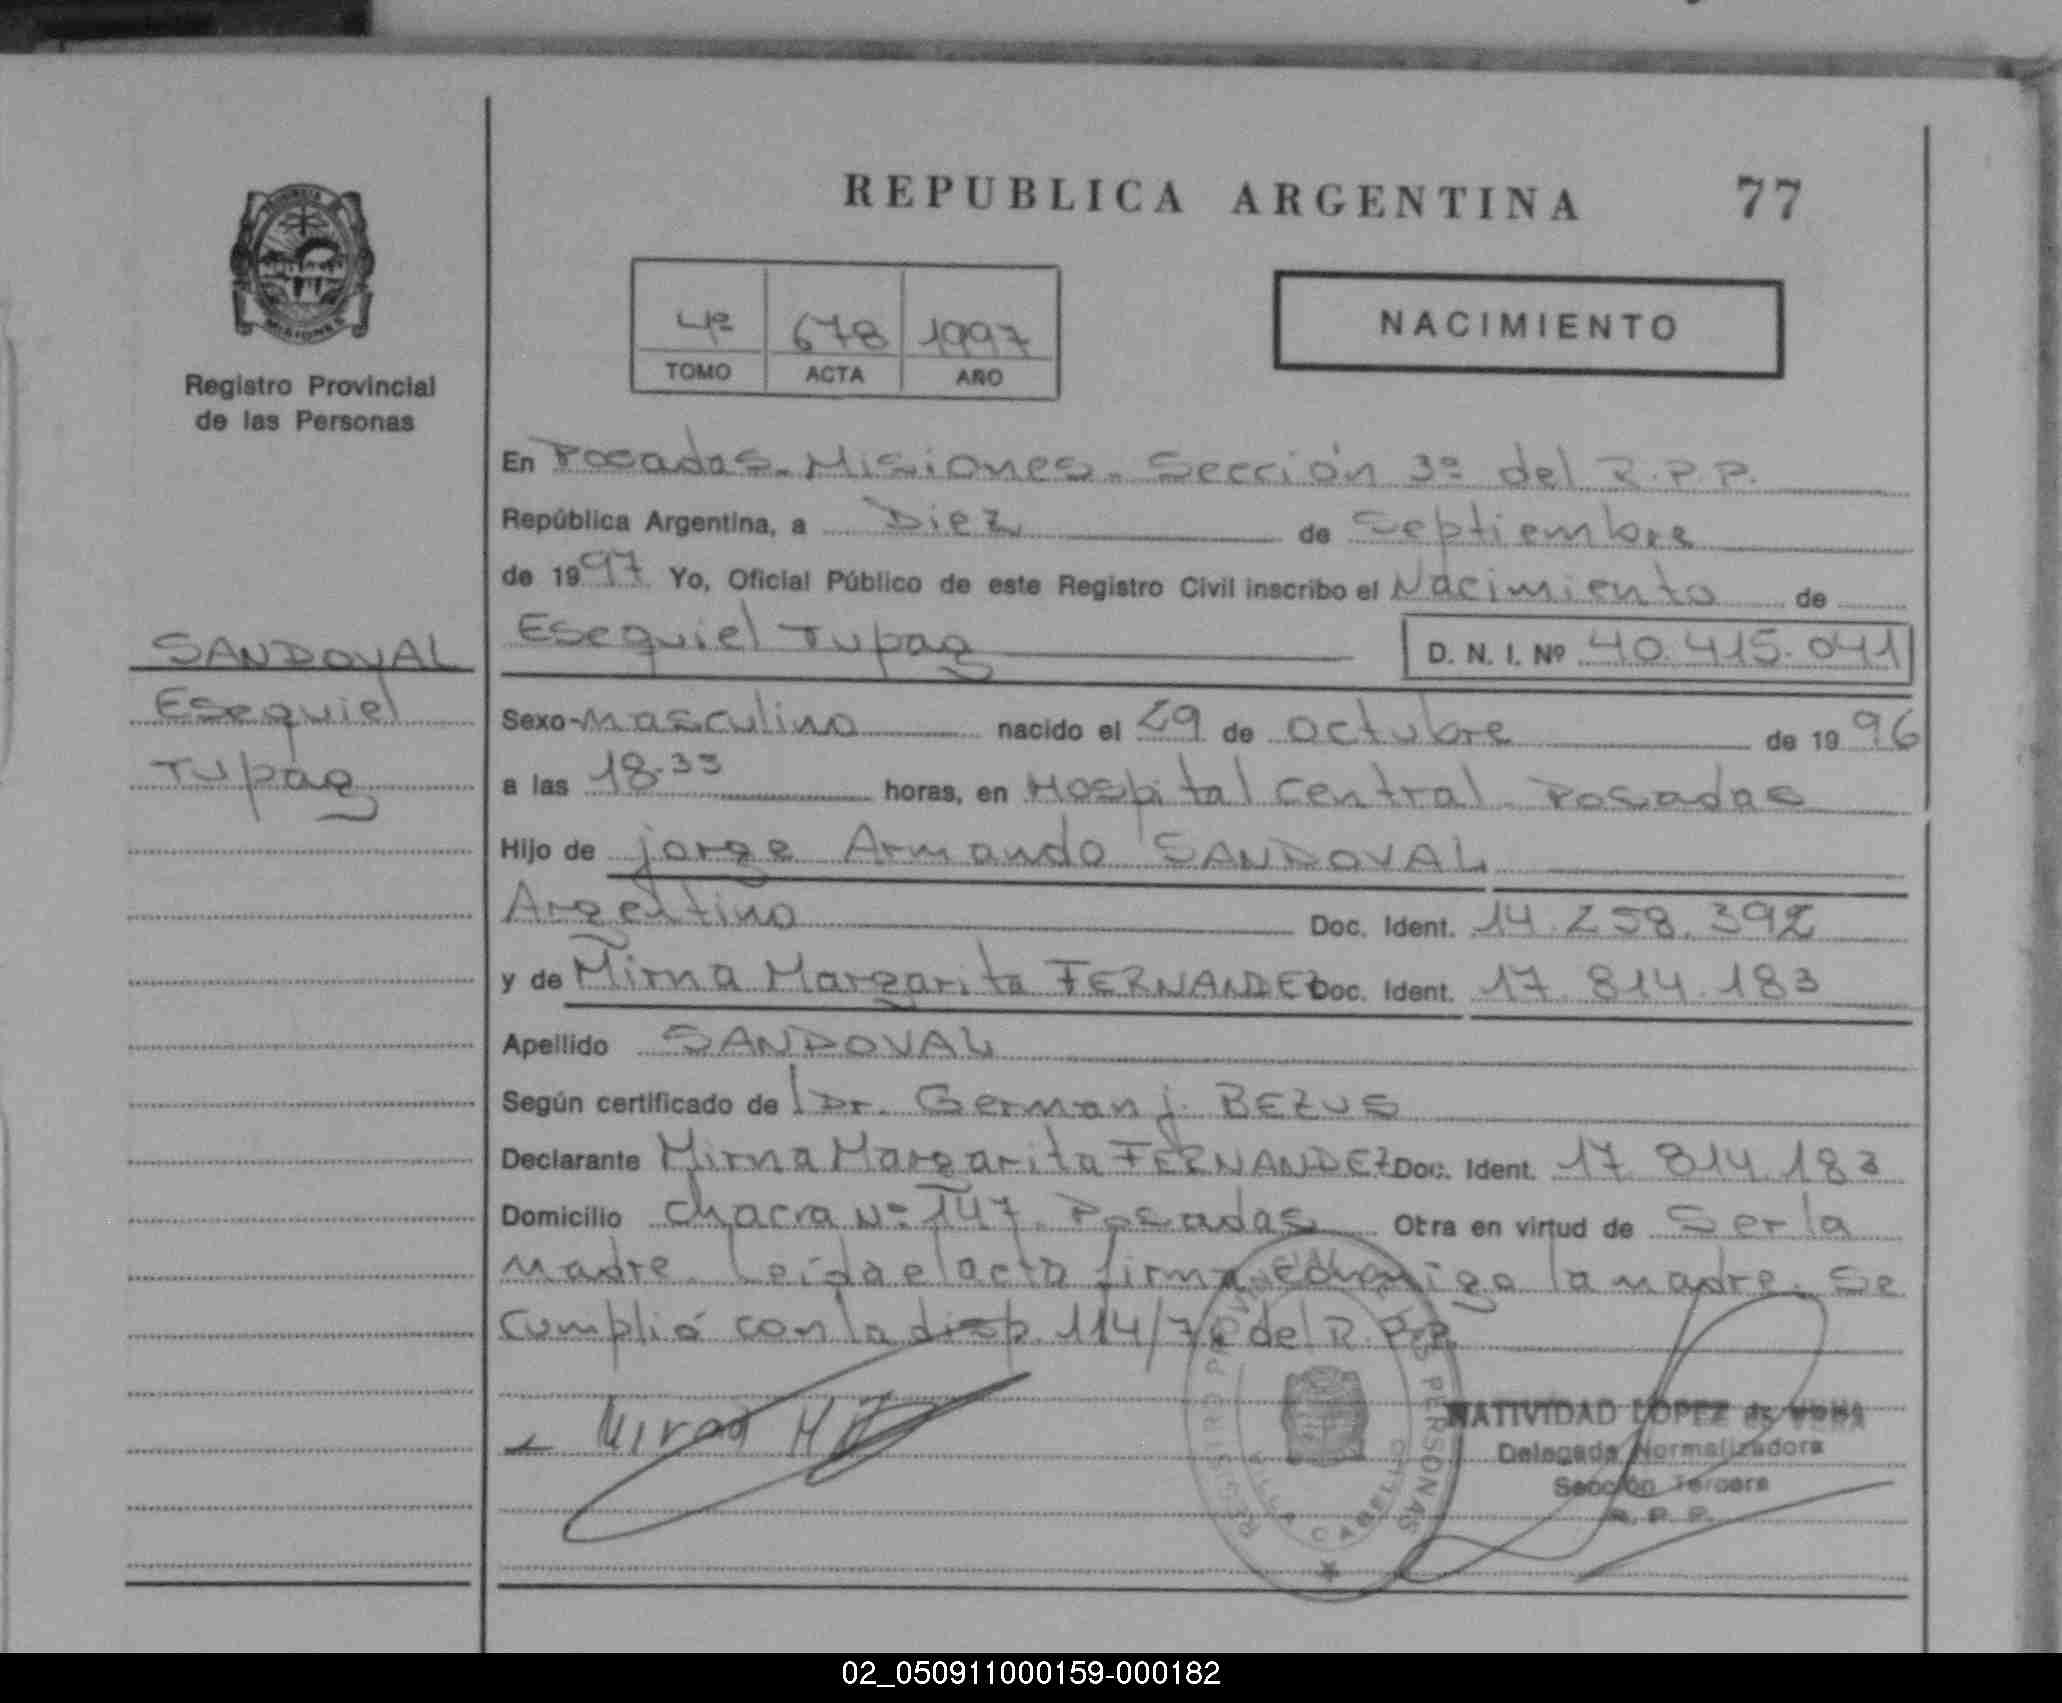 REPUBLICA ARGENTINA 77
PROVINCIA
MISIONES
Registro Provincial
de las Personas
4º 678 1997
TOMO ACTA AÑO
NACIMIENTO
En Posadas. Misiones. Sección 3º del R.P.P.
República Argentina, a Diez de Septiembre
de 1997 Yo, Oficial Público de este Registro Civil inscribo el Nacimiento de
Esequiel Tupaq D. N. I. Nº 40.415.041
SANDOVAL
Esequiel
Tupaq
Sexo Masculino nacido el 29 de octubre de 1996
a las 18.33 horas, en Hospital Central. Posadas
Hijo de jorge Armando SANDOVAL
Argentino Doc. Ident. 14.258.392
y de Mirna Margarita FERNANDEZ Doc. Ident. 17.814.183
Apellido SANDOVAL
Según certificado de Dr. German j. BEZUS
Declarante Mirna Margarita FERNANDEZ Doc. Ident. 17.814.183
Domicilio chacra Nº 147. Posadas Otra en virtud de Ser la
madre. Leída el acta firma conmigo la madre. Se
cumplió con la disp. 114/ del R.P.P.
REGISTRO PROVINCIAL DE LAS PERSONAS
VILLA CABELLO
NATIVIDAD LOPEZ de VERA
Delegada Normalizadora
Sección Tercera
R. P. P.
02_050911000159-000182